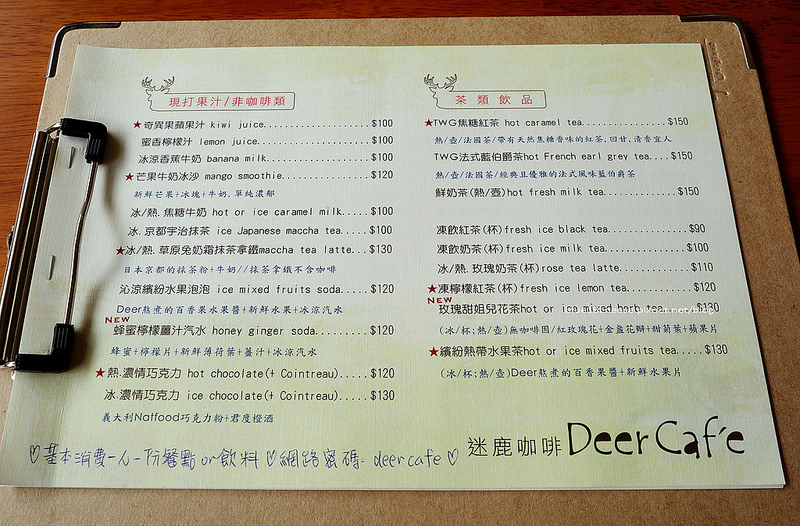 現打果汁/非咖啡類
★奇異果蘋果汁 kiwi juice....................$100
蜜香檸檬汁 lemon juice....................$100
冰涼香蕉牛奶 banana milk....................$100
★芒果牛奶冰沙 mango smoothie....................$120
新鮮芒果+冰塊+牛奶,單純濃郁
冰/熱.焦糖牛奶 hot or ice caramel milk.....$100
冰.京都宇治抹茶 ice Japanese maccha tea.....$100
★冰/熱.草原兔奶霜抹茶拿鐵maccha tea latte...$130
日本京都的抹茶粉+牛奶//抹茶拿鐵不含咖啡
沁涼繽紛水果泡泡 ice mixed fruits soda.....$120
Deer熬煮的百香果水果醬+新鮮水果+冰涼汽水
NEW
蜂蜜檸檬薑汁汽水 honey ginger soda.........$120
蜂蜜+檸檬片+新鮮薄荷葉+薑汁+冰涼汽水
★熱.濃情巧克力 hot chocolate(+ Cointreau).....$120
冰.濃情巧克力 ice chocolate(+ Cointreau).....$130
義大利Natfood巧克力粉+君度橙酒
茶類飲品
★TWG焦糖紅茶 hot caramel tea...............$150
熱/壺/法國茶/帶有天然焦糖香味的紅茶,回甘,清香宜人
TWG法式藍伯爵茶hot French earl grey tea....$150
熱/壺/法國茶/經典且優雅的法式風味藍伯爵茶
鮮奶茶(熱/壺)hot fresh milk tea.............$150
凍飲紅茶(杯)fresh ice black tea..............$90
凍飲奶茶(杯)fresh ice milk tea..............$100
冰/熱.玫瑰奶茶(杯)rose tea latte............$110
★凍檸檬紅茶(杯)fresh ice lemon tea...........$120
NEW
玫瑰甜姐兒花茶hot or ice mixed herb tea.....$130
(冰/杯;熱/壺)無咖啡因/紅玫瑰花+金盞花瓣+甜菊葉+蘋果片
★繽紛熱帶水果茶hot or ice mixed fruits tea.....$130
(冰/杯;熱/壺)Deer熬煮的百香果醬+新鮮水果片
♡基本消費一人一份餐點or飲料♡網路密碼: deercafe♡
迷鹿咖啡 Deer Cafe